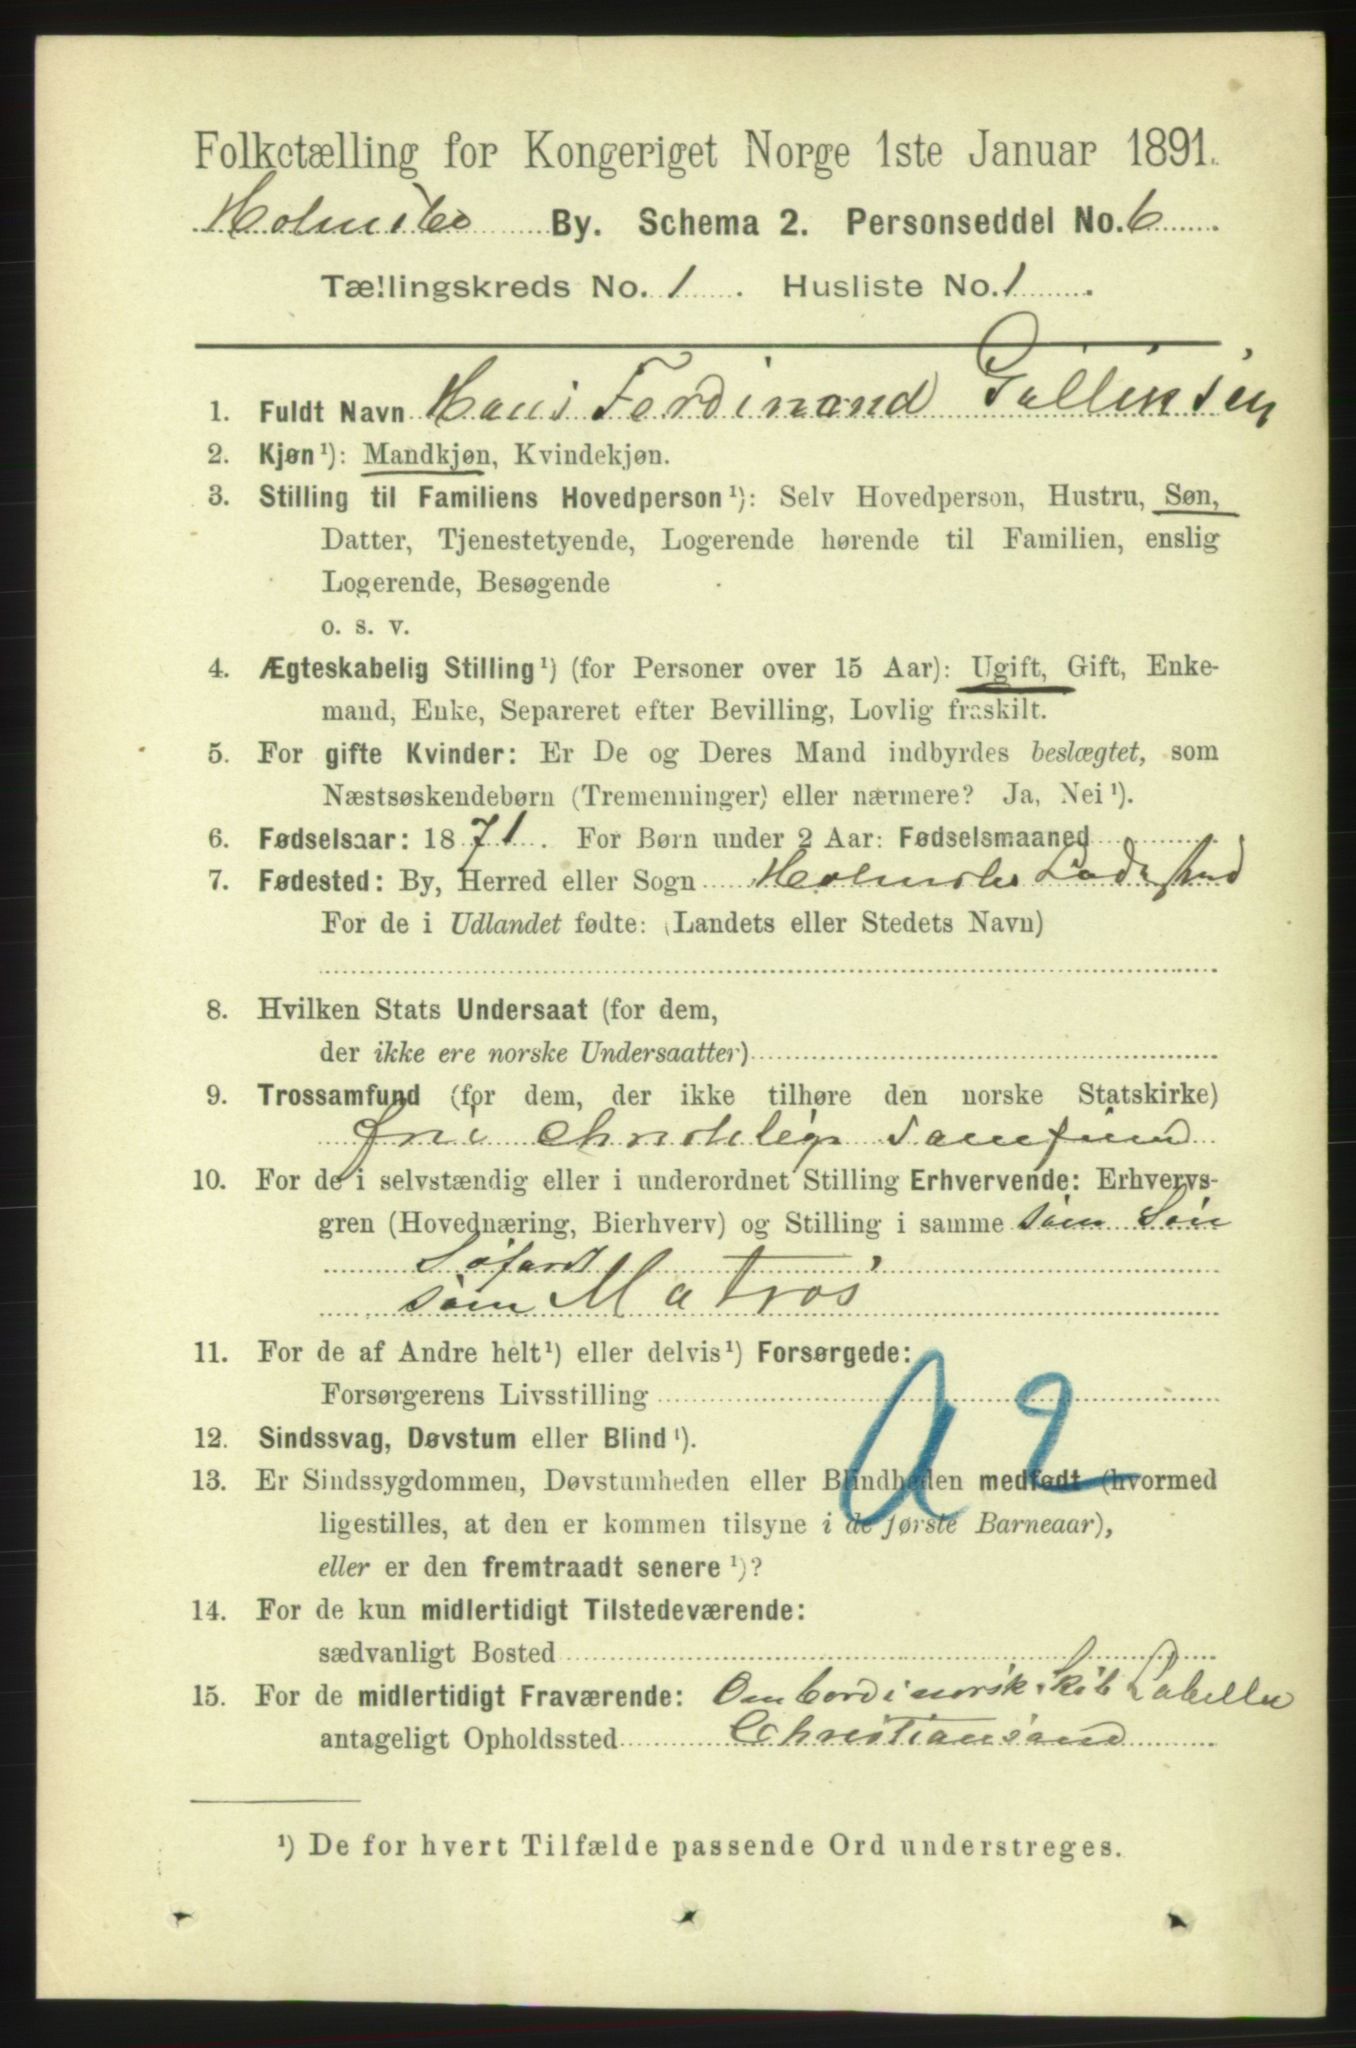 Folketælling for Kongeriget Norge 1ste Januar 1891.
Holmsbo By. Schema 2. Personseddel No. 6
Tællingskreds No. 1. Husliste No. 1.
1. Fuldt Navn Hans Ferdinand
2. Kjøn¹): Mandkjøn, Kvindekjøn.
3. Stilling til Familiens Hovedperson¹): Selv Hovedperson, Hustru, Søn,
Datter, Tjenestetyende, Logerende hørende til Familien, enslig
Logerende, Besøgende
o. s. v.
4. Ægteskabelig Stilling¹) (for Personer over 15 Aar): Ugift, Gift, Enke-
mand, Enke, Separeret efter Bevilling, Lovlig fraskilt.
5. For gifte Kvinder: Er De og Deres Mand indbyrdes beslægtet, som
Næstsøskendebørn (Tremenninger) eller nærmere? Ja, Nei¹).
6. Fødselsaar: 1871. For Børn under 2 Aar: Fødselsmaaned
7. Fødested: By, Herred eller Sogn Holmsbo Ladested
For de i Udlandet fødte: (Landets eller Stedets Navn)
8. Hvilken Stats Undersaat (for dem,
der ikke ere norske Undersaatter)
9. Trossamfund (for dem, der ikke tilhøre den norske Statskirke)
Fri Christelige Samfund
10. For de i selvstændig eller i underordnet Stilling Erhvervende: Erhvervs-
gren (Hovednæring, Bierhverv) og Stilling i samme som Søn
Søfart
som Matros
11. For de af Andre helt¹) eller delvis¹) Forsørgede:
Forsørgerens Livsstilling
A 2
12. Sindssvag, Døvstum eller Blind¹).
13. Er Sindssygdommen, Døvstumheden eller Blindheden medfødt (hvormed
ligestilles, at den er kommen tilsyne i de første Barneaar),
eller er den fremtraadt senere¹)?
14. For de kun midlertidigt Tilstedeværende:
sædvanligt Bosted
15. For de midlertidigt Fraværende: Ombord i norsk Skib
antageligt Opholdssted Christiansand
¹) De for hvert Tilfælde passende Ord understreges.